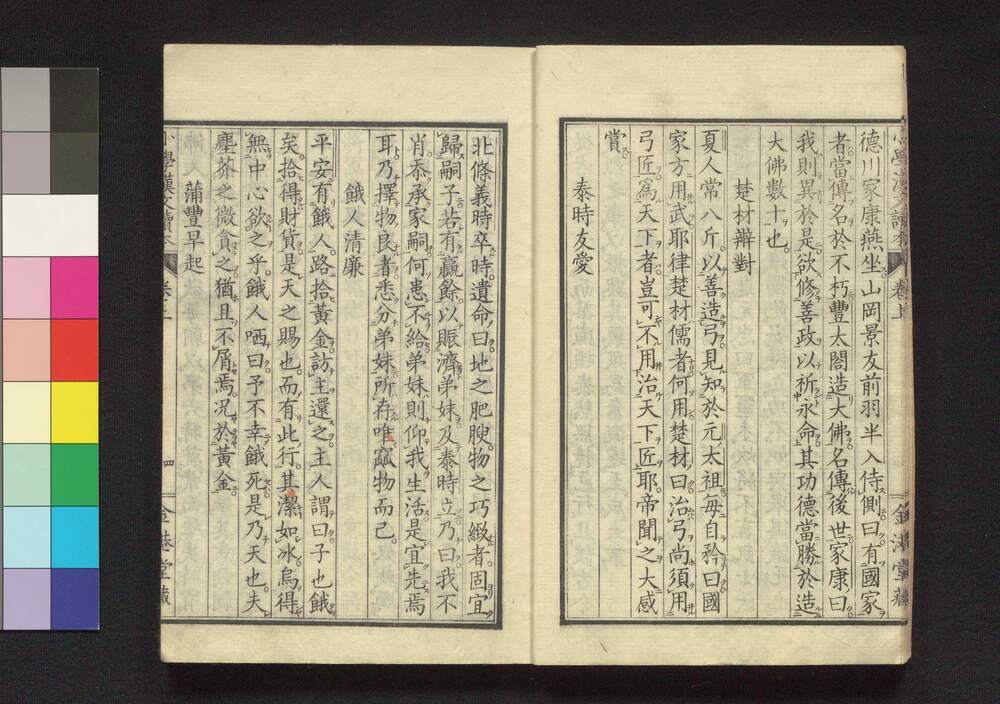 德川家康燕坐山岡景友前羽半入侍側曰有國家
者當傳名於不朽豐太閤造大佛名傳後世家康曰
我則異於是欲修善政以祈永命其功德當勝於造
大佛數十也
楚材辯對
夏人常八斤以善造弓見知於元太祖每自矜曰國
家方用武耶律楚材儒者何用楚材曰治弓尚須用
弓匠爲天下者豈可不用治天下匠耶帝聞之大感
賞
泰時友愛
北條義時卒時遺命曰地之肥腴物之巧緻者固宜
歸嗣子若有贏餘以賑濟弟妹及泰時立乃曰我不
肖忝承家嗣何患不給弟妹則仰我生活是宜先焉
耳乃擇物良者悉分弟妹所存唯窳物而已
餓人清廉
平安有餓人路拾黃金訪主還之主人謂曰子也餓
矣拾得財貨是天之賜也而有此行其潔如冰烏得
無中心欲之乎餓人哂曰予不幸餓死是乃天也夫
塵芥之微貪之猶且不屑焉況於黃金
蒲豐早起
小學漢文讀本 卷上 四 金港堂藏